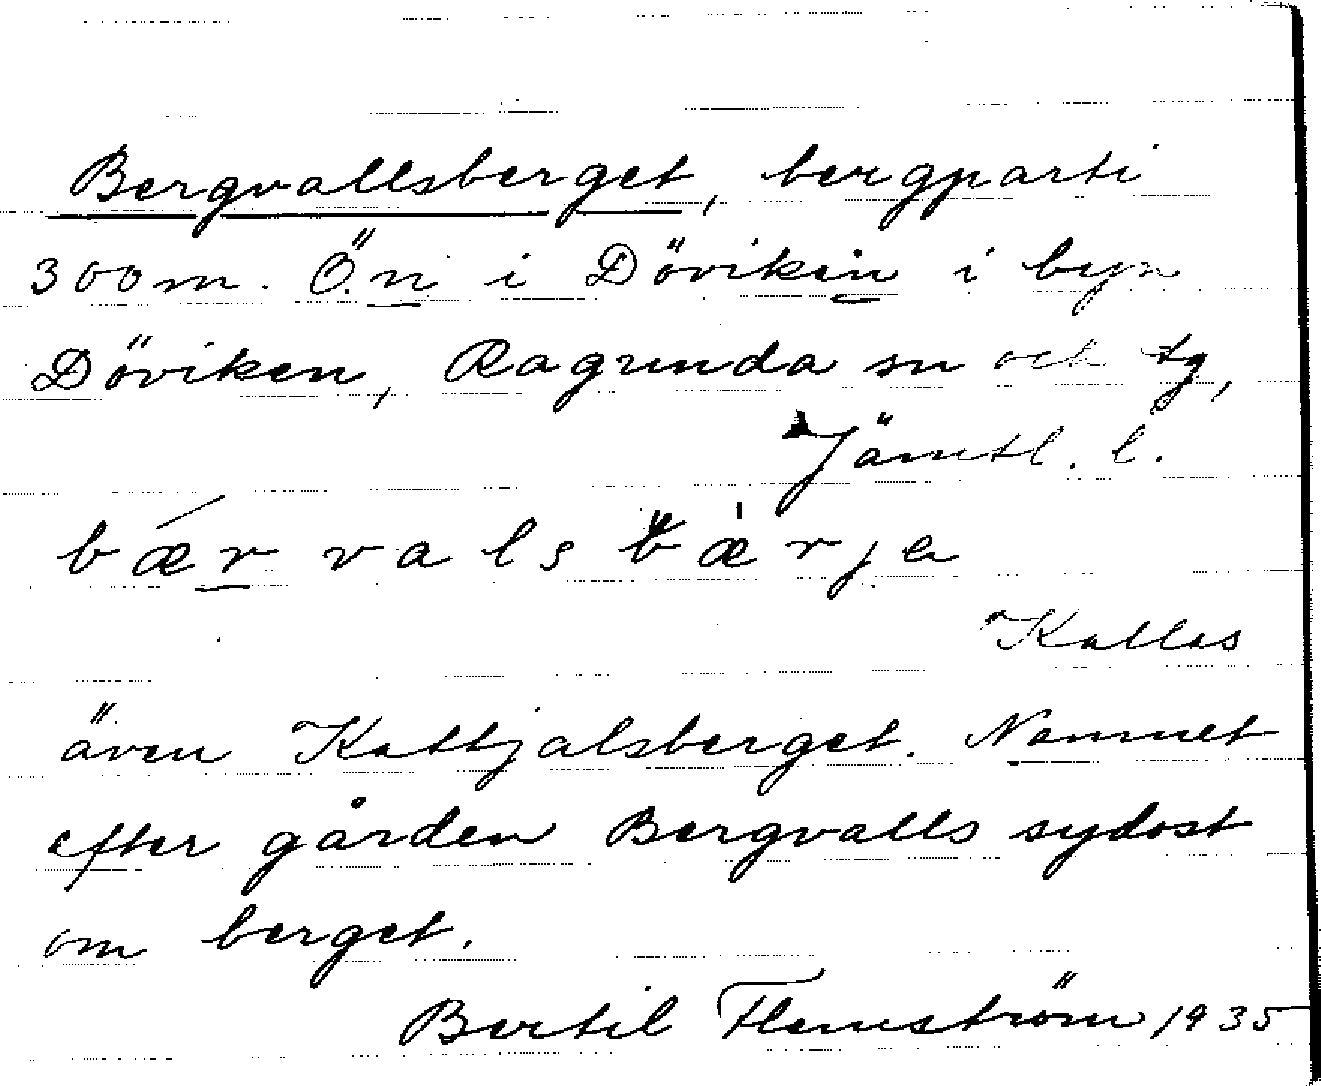 Bergvallsberget, bergparti
300 m. Ö. n i Döviken i byn
Döviken, Ragunda sn och tg,
Jämtl. l.
bærvalsbærje
Kallas
även Kattjalsberget. Namnet
efter gården Bergvalls sydost
om berget.
Bertil Flemström 1935